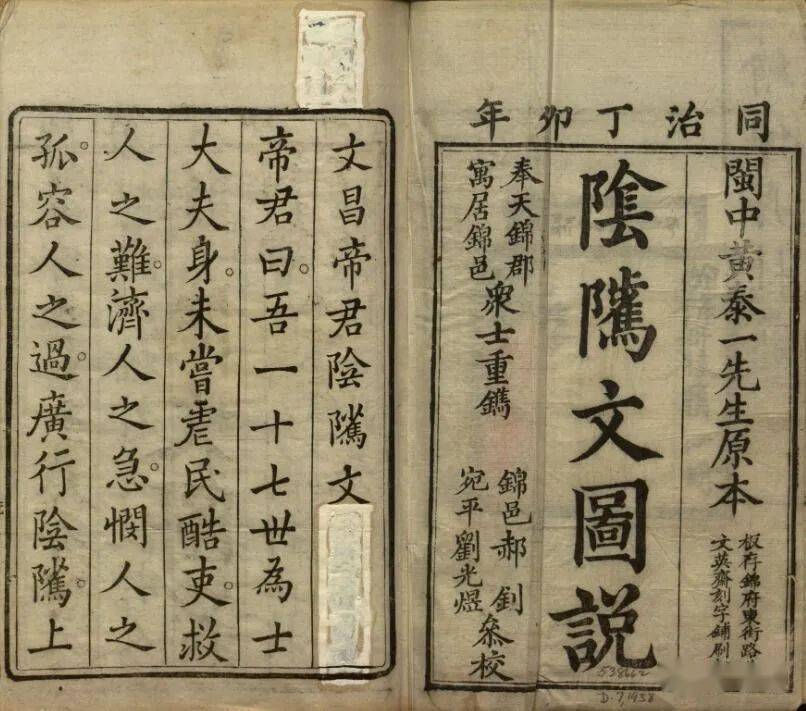 同治丁卯年
閩中黃泰一先生原本
板存錦府東街路
文英齋刻字鋪刷
陰隲文圖說
奉天錦郡
寓居錦邑
衆士重鐫
錦邑郝釗
宛平劉光煜
叅校
538662
D.7,1938
文昌帝君陰隲文
帝君曰。吾一十七世為士
大夫身。未嘗虐民酷吏。救
人之難。濟人之急。憫人之
孤。容人之過。廣行陰隲。上